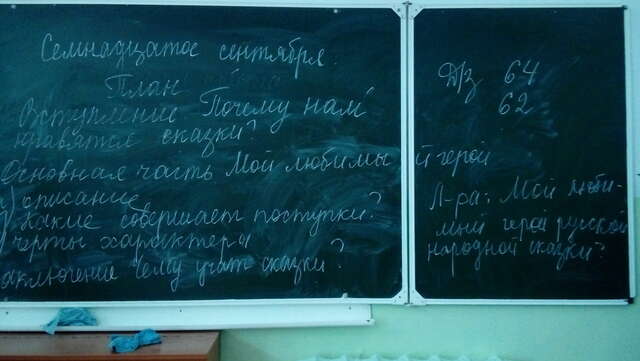 Семнадцатое сентября.
План
Вступление. Почему нам
нравятся сказки?
Основная часть Мой любимый герой
а) описание.
) Какие совершает поступки?
черты характеры
аключение Чему учат сказки?
Д/з 64
62
Л-ра: Мой люби-
мый герой русской
народной сказки?